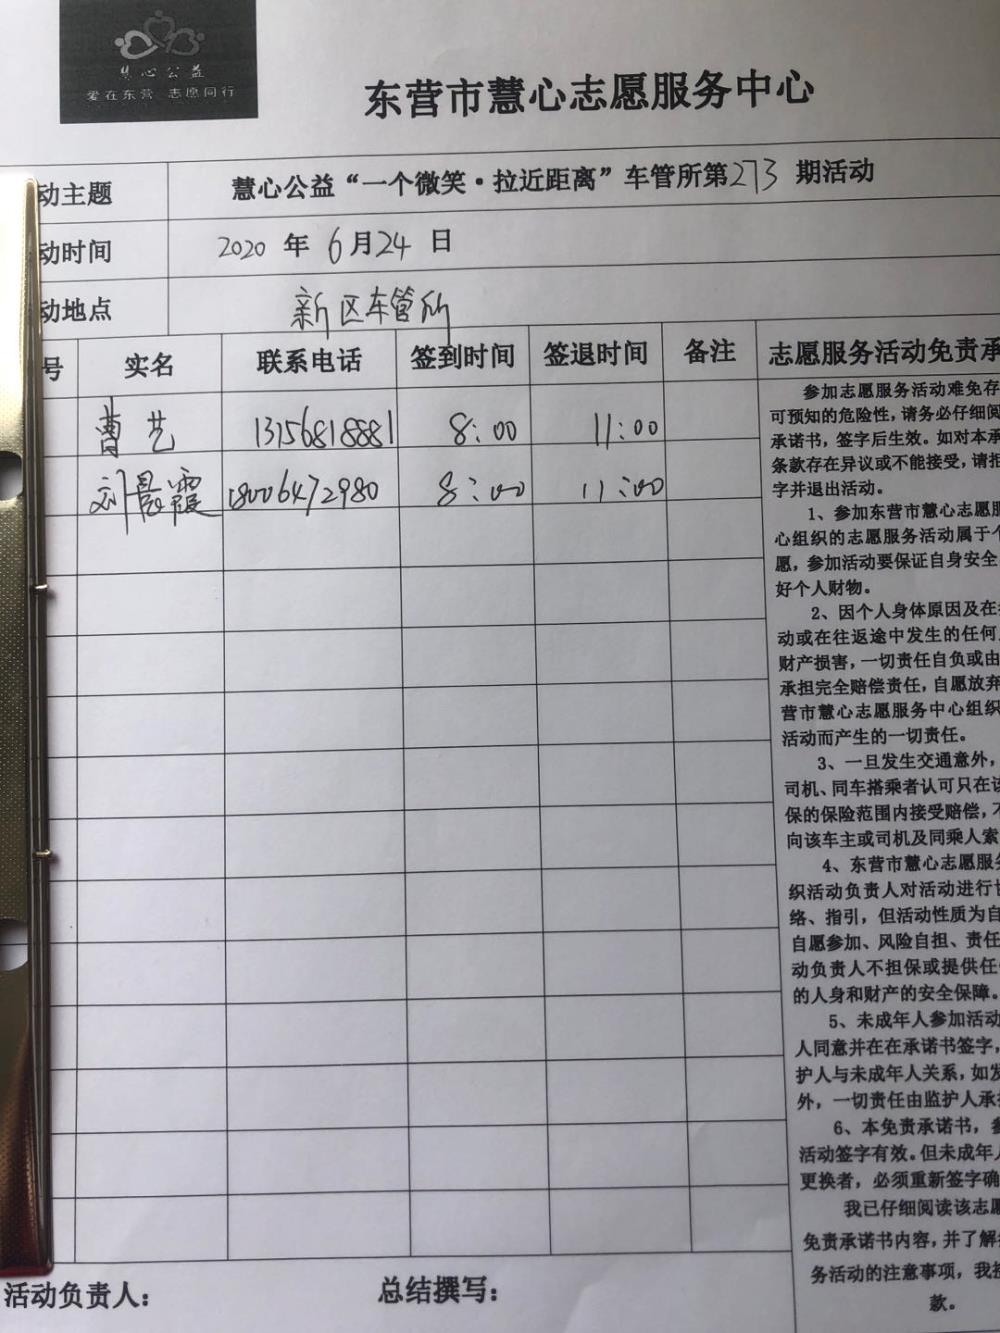 慧心公益
爱在东营 志愿同行
东营市慧心志愿服务中心
动主题 慧心公益“一个微笑·拉近距离”车管所第273期活动
动时间 2020 年 6月24 日
动地点 新区车管所
号 实名 联系电话 签到时间 签退时间 备注 志愿服务活动免责承
曹艺 13156818881 8:00 11:00
刘晨霞 18006472980 8:00 11:00
参加志愿服务活动难免存
可预知的危险性，请务必仔细阅
承诺书，签字后生效。如对本承
条款存在异议或不能接受，请拒
字并退出活动。
1、参加东营市慧心志愿服
心组织的志愿服务活动属于个
愿，参加活动要保证自身安全
好个人财物。
2、因个人身体原因及在
动或在往返途中发生的任何
财产损害，一切责任自负或由
承担完全赔偿责任，自愿放弃
营市慧心志愿服务中心组织
活动而产生的一切责任。
3、一旦发生交通意外，
司机、同车搭乘者认可只在该
保的保险范围内接受赔偿，不
向该车主或司机及同乘人索
4、东营市慧心志愿服务
织活动负责人对活动进行协
络、指引，但活动性质为自
自愿参加、风险自担、责任
动负责人不担保或提供任
的人身和财产的安全保障。
5、未成年人参加活动
人同意并在在承诺书签字，
护人与未成年人关系，如发
外，一切责任由监护人承
6、本免责承诺书，参
活动签字有效。但未成年人
更换者，必须重新签字确
我已仔细阅读该志愿
免责承诺书内容，并了解
务活动的注意事项，我接
款。
活动负责人： 总结撰写：